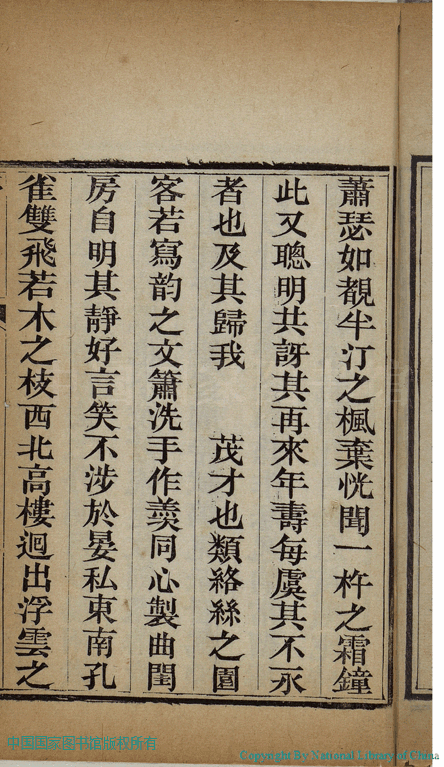 蕭瑟如覩半汀之楓葉恍聞一杵之霜鐘
此又聰明共訝其再來年壽每虞其不永
者也及其歸我　　茂才也類絡絲之園
客若寫韵之文簫洗手作羹同心製曲閨
房自明其靜好言笑不涉於晏私東南孔
雀雙飛若木之枝西北高樓迴出浮雲之
中国国家图书馆版权所有
Copyright By National Library of China